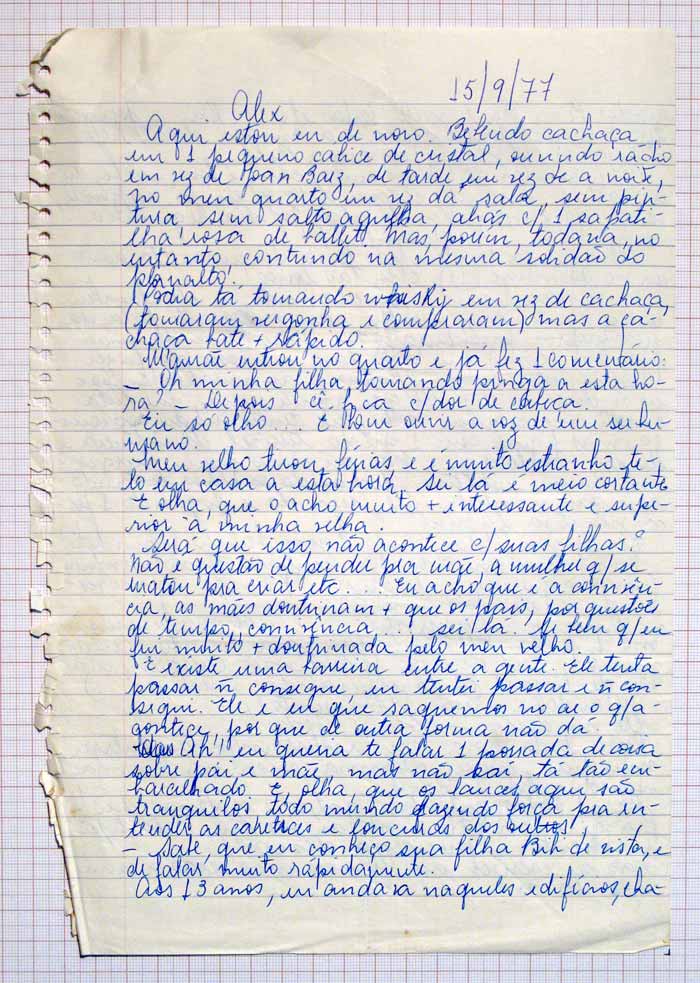 15/9/77
Alex
Aqui estou eu de novo. Bebendo cachaça
em 1 pequeno cálice de cristal, ouvindo rádio
em vez de Joan Baez, de tarde em vez de a noite,
no meu quarto em vez da sala, sem pin-
tura sem salto agulha, aliás c/ 1 sapati-
lha rosa de ballet! Mas, porém, todavia, no
entanto, contundo na mesma solidão do
planalto!
Podia tá tomando whisky em vez de cachaça,
(tomaram vergonha e compraram) mas a ca-
chaça bate + rápido.
Mamãe entrou no quarto e já fez 1 comentário:
– Oh minha filha, tomando pinga a esta ho-
ra? – Depois 'cê fica c/dor de cabeça.
Eu só olho... É bom ouvir a voz de um ser hu-
mano.
Meu velho tirou férias, e é muito estranho te-
lo em casa a esta hora, sei lá é meio cortante
E olha, que o acho muito + interessante e supe-
rior à minha velha.
Será que isso não acontece c/ suas filhas?
Não é questão de pender pra mãe, a mulher q/ se
matou pra criar etc... Eu acho que é a convivên-
cia, as mães doutrinam + que os pais, por questões
de tempo, convivência... sei lá. Se bem q/ eu
fui muito + doutrinada pelo meu velho.
E existe uma barreira entre a gente. Ele tenta
passar ñ consegue, eu tentei passar e ñ con-
segui. Ele e eu que saquemos no ar o q/ a-
contece, por que de outra forma não dá.
Ah! eu queria te falar 1 porrada de coisa
sobre pai e mãe, mas não sai, tá tão em-
baralhado. E, olha, que os lances aqui são
tranquilos todo mundo fazendo força pra en-
tender as caretices e loucuras dos outros!
– Sabe, que eu conheço sua filha Bibi de vista, e
de falar muito rápidamente.
Aos 13 anos, eu andava naqueles edifícios, cha-